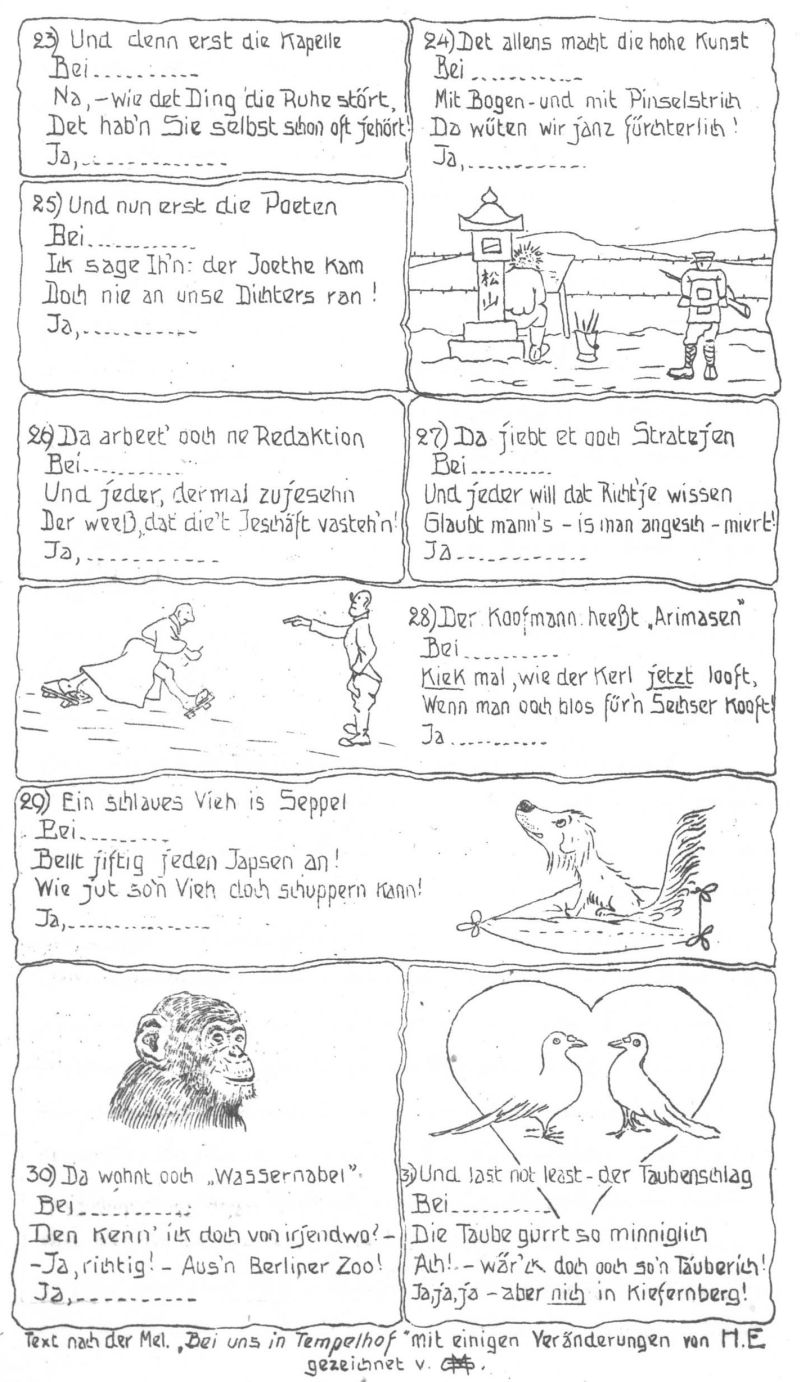 23) Und denn erst die Kapelle
Bei...........
Na,-wie det Ding die Ruhe stört,
Det hab'n Sie selbst schon oft jehört!
Ja,..............
24) Det allens macht die hohe Kunst
Bei...........
Mit Bogen-und mit Pinselstrich
Da wüten wir janz fürchterlich!
Ja,............
松山
25) Und nun erst die Poeten
Bei...........
Ick sage Ih'n: der Joethe kam
Doch nie an unse Dichters ran!
Ja,............
26) Da arbeet' ooch ne Redaktion
Bei...........
Und jeder, der mal zujesehn
Der weeß, dat die't Jeschäft vasteh'n!
Ja,..............
27) Da jiebt et ooch Stratejen
Bei..........
Und jeder will dat Richt'je wissen
Glaubt mann's - is man angesch-miert!
Ja..............
28) Der Koofmann heeßt „Arimasen"
Bei............
Kiek mal, wie der Kerl jetzt looft,
Wenn man ooch blos für'n Sechser kooft!
Ja...........
29) Ein schlaues Vieh is Seppel
Bei..........
Bellt jiftig jeden Japsen an!
Wie jut so'n Vieh doch schuppern kann!
Ja,...............
30) Da wohnt ooch „Wassernabel"
Bei............
Den kenn' ick doch von irjendwo?-
-Ja, richtig! - Aus'n Berliner Zoo!
Ja,.............
31) Und last not least - der Taubenschlag
Bei...........
Die Taube gurrt so minniglich
Ach! - wär'ck doch ooch so'n Täuberich!
Ja,ja,ja - aber nich in Kiefernberg!
Text nach der Mel. „Bei uns in Tempelhof" mit einigen Veränderungen von H.E
gezeichnet v.